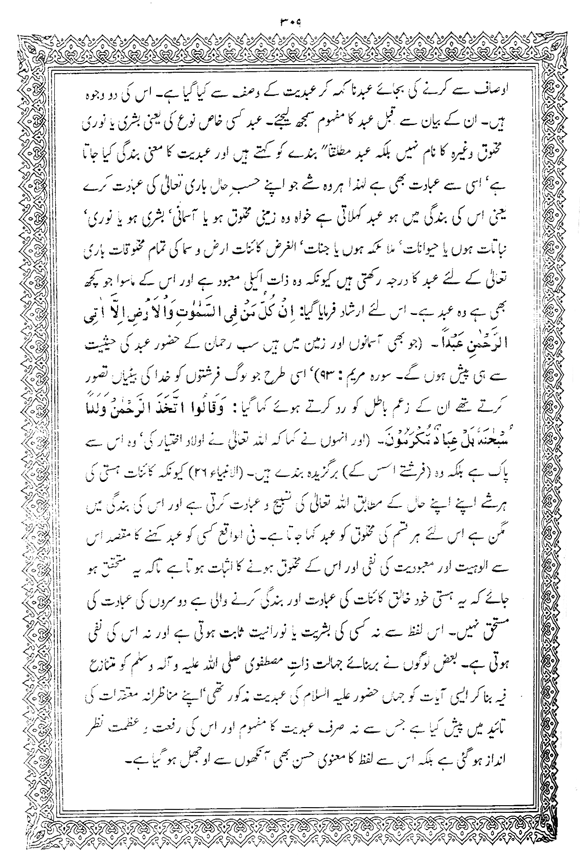 ۳۰۹
اوصاف سے کرنے کی بجائے عبدنا کہہ کر عبدیت کے وصف سے کیا گیا ہے۔ اس کی دو وجوہ
ہیں۔ ان کے بیان سے قبل عبد کا مفہوم سمجھ لیجئے۔ عبد کسی خاص نوع کی یعنی بشری یا نوری
مخلوق وغیرہ کا نام نہیں بلکہ عبد مطلقاً بندے کو کہتے ہیں اور عبدیت کا معنی بندگی کیا جاتا
ہے' اسی سے عبادت بھی ہے لہٰذا ہر وہ شے جو اپنے حسب حال باری تعالیٰ کی عبادت کرے
یعنی اس کی بندگی میں ہو عبد کہلاتی ہے خواہ وہ زمینی مخلوق ہو یا آسمانی' بشری ہو یا نوری'
نباتات ہوں یا حیوانات' ملائکہ ہوں یا جنات' الغرض کائنات ارض و سما کی تمام مخلوقات باری
تعالیٰ کے لئے عبد کا درجہ رکھتی ہیں کیونکہ وہ ذات اکیلی معبود ہے اور اس کے ماسوا جو کچھ
بھی ہے وہ عبد ہے۔ اس لئے ارشاد فرمایا گیا: اِنْ کُلُّ مَنْ فِی السَّمٰوٰتِ وَالْاَرْضِ اِلَّا اٰتِی
الرَّحْمٰنِ عَبْدًا۔ (جو بھی آسمانوں اور زمین میں ہیں سب رحمان کے حضور عبد کی حیثیت
سے ہی پیش ہوں گے۔ سورہ مریم: ۹۳)' اسی طرح جو لوگ فرشتوں کو خدا کی بیٹیاں تصور
کرتے تھے ان کے زعم باطل کو رد کرتے ہوئے کہا گیا: وَقَالُوا اتَّخَذَ الرَّحْمٰنُ وَلَدًا
سُبْحٰنَهٗ بَلْ عِبَادٌ مُّکْرَمُوْنَ۔ (اور انہوں نے کہا کہ اللہ تعالیٰ نے اولاد اختیار کی' وہ اس سے
پاک ہے بلکہ وہ (فرشتے اس کے) برگزیدہ بندے ہیں۔ (الانبیاء ۲۶) کیونکہ کائنات ہستی کی
ہر شے اپنے اپنے حال کے مطابق اللہ تعالیٰ کی تسبیح و عبادت کرتی ہے اور اس کی بندگی میں
مگن ہے اس لئے ہر قسم کی مخلوق کو عبد کہا جاتا ہے۔ فی الواقع کسی کو عبد کہنے کا مقصد اس
سے الوہیت اور معبودیت کی نفی اور اس کے مخلوق ہونے کا اثبات ہوتا ہے تاکہ یہ متحقق ہو
جائے کہ یہ ہستی خود خالق کائنات کی عبادت اور بندگی کرنے والی ہے دوسروں کی عبادت کی
مستحق نہیں۔ اس لفظ سے نہ کسی کی بشریت یا نورانیت ثابت ہوتی ہے اور نہ اس کی نفی
ہوتی ہے۔ بعض لوگوں نے بربنائے جہالت ذات مصطفوی صلی اللہ علیہ و آلہ وسلم کو متنازع
فیہ بنا کر ایسی آیات کو جہاں حضور علیہ السلام کی عبدیت مذکور تھی' اپنے مناظرانہ معتقدات کی
تائید میں پیش کیا ہے جس سے نہ صرف عبدیت کا مفہوم اور اس کی رفعت و عظمت نظر
انداز ہو گئی ہے بلکہ اس سے لفظ کا معنوی حسن بھی آنکھوں سے اوجھل ہو گیا ہے۔